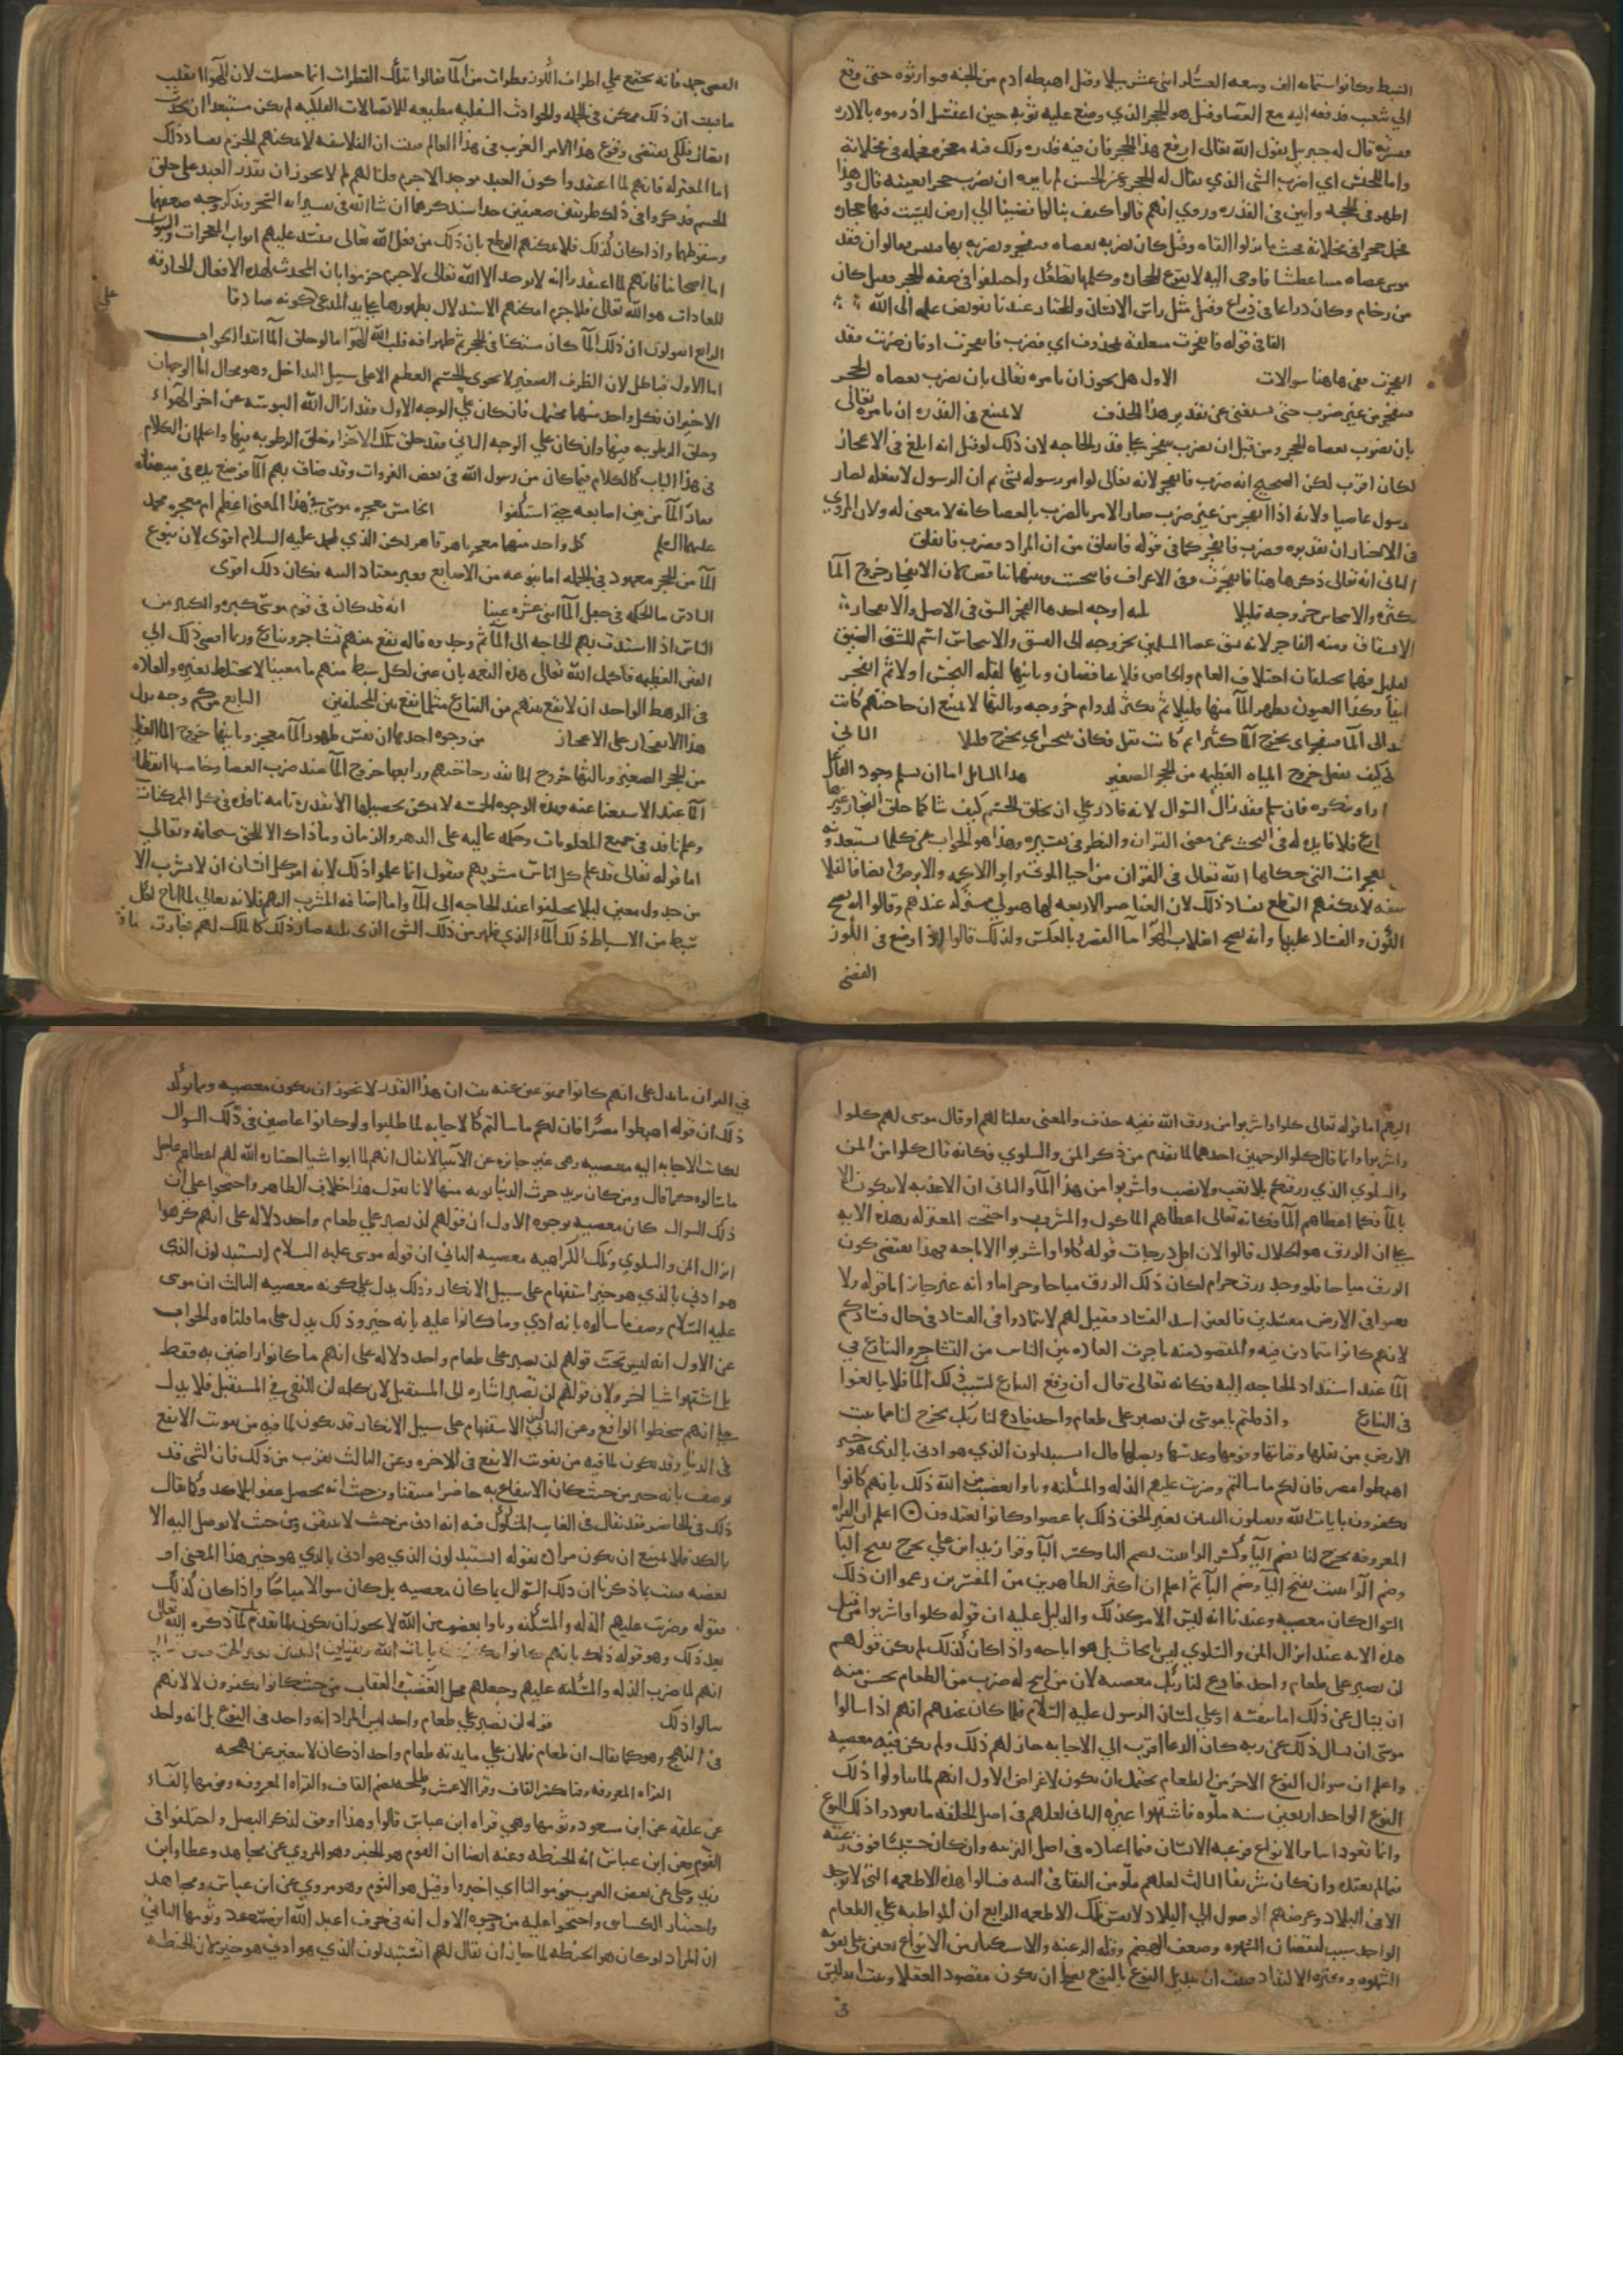 السبط وكانوا ستمايه الف وسعه العسكر اثنى عشر ميلا وقيل اهبطه ادم من الجنه فتوارثوه حتى وقع
الي شعيب فدفعه اليه مع العصا وقيل هو الحجر الذي وضع عليه ثوبه حين اغتسل اذ رموه بالادره
ففر به قال له جبريل يقول الله تعالى ارفع هذا الحجر فان فيه قدره ولك فيه معجزه فحمله في مخلاته
واما للجنس اي اضرب الشي الذي يقال له الحجر وعن الحسن لم يامره ان يضرب حجرا بعينه قال وهذا
اظهر في الحجه وابين في القدره وروي انهم قالوا كيف بنا لو افضينا الي ارض ليست فيها حجاره
فحمل حجرا في مخلاته فحيث ما نزلوا القاه وقيل كان يضربه بعصاه فيتفجر ويضربه بها فييبس فقالوا ان فقد
موسى عصاه متنا عطشا فاوحى اليه لا تقرع الحجاره وكلمها تطعك واختلفوا في صفه الحجر فقيل كان
من رخام وكان ذراعا في ذراع وقيل مثل راس الانسان والمختار عندنا تفويض علمه الى الله
الثاني قوله فانفجرت متعلقه بمحذوف اي فضرب فانفجرت او فان ضربت فقد
انفجرت بقي هاهنا سوالات الاول هل يجوز ان يامره تعالى بان يضرب بعصاه الحجر
فينفجر من غير ضرب حتى يستغنى عن تقدير هذا المحذوف لا يمتنع في القدره ان يامره تعالى
بان يضرب بعصاه الحجر ومن قبل ان يضرب ينفجر على قدر الحاجه لان ذلك لو قيل انه ابلغ في الاعجاز
لكان اقرب لكن الصحيح انه ضرب فانفجر لانه تعالى لو امر رسوله بشي ثم ان الرسول لا يفعله لصار
رسول عاصيا ولانه اذا انفجر من غير ضرب صار الامر بالضرب بالعصا كانه لا معنى له ولان المروي
في الاخبار ان تقديره فضرب فانفجر كما في قوله فانفلق من ان المراد فضرب فانفلق
الثاني انه تعالى ذكر هاهنا فانفجرت وفي الاعراف فانبجست وبينهما تناقض لان الانفجار خروج الما
بكثره والانبجاس خروجه قليلا ثلثه اوجه احدها الفجر الشق في الاصل والانفجار
الانشقاق ومنه الفاجر لانه شق عصا المسلمين بخروجه الى الفسق والانبجاس اسم للشق الضيق
لقليل فهما يختلفان اختلاف العام والخاص فلا يتناقضان وثانيها لعله انبجس اولا ثم انفجر
ايضا وكذا العيون يظهر الما منها قليلا ثم يكثر لدوام خروجه وثالثها لا يمتنع ان حاجتهم كانت
تشتد الى الما فينفجر اي يخرج الما كثيرا ثم كانت تقل فكان ينبجس اي يخرج قليلا الثاني
انه كيف يعقل خروج المياه العظيمه من الحجر الصغير هذا السايل اما ان يسلم وجود الفاعل
او ينكره فان سلم فقد زال السوال لانه قادر على ان يخلق الجسم كيف شا كما خلق البحار وغيرها
نازع فلا فايده له في البحث عن معنى القران والنظر في تفسيره وهذا هو الجواب عن كلما يستبعدونه
المعجزات التي حكاها الله تعالى في القران من احيا الموتى وابرا الاكمه والابرص ايضا فالفلاسفه
سفه لا يمكنهم القطع بفساد ذلك لان العناصر الاربعه لها هيولى مشتركه عندهم وقالوا انه يصح
الكون والفساد عليها وانه يصح انقلاب الهوا ما والعكس وكذلك قالوا اذا وضع في الكوز
الفضي
الفضى جمد فانه يجتمع علي اطراف الكوز قطرات من الما فقالوا تلك القطرات انما حصلت لان الهوا انقلب
ما فثبت ان ذلك ممكن في الجمله والحوادث السفليه مطيعه للاتصالات الفلكيه فلم يكن مستبعدا ان يحدث
اتصال فلكي يقتضي وقوع هذا الامر الغريب في هذا العالم فثبت ان الفلاسفه لا يمكنهم الجزم بفساد ذلك
اما المعتزله فانهم لما اعتقدوا كون العبد موجد الاجرم قلنا لهم لم لا يجوز ان يقدر العبد على خلق
الجسم فذكروا في ذلك طريقين ضعيفين جدا سنذكرهما ان شا الله في تفسير ايه السحر ونذكر وجه ضعفهما
وسقوطهما واذا كان كذلك فلا يمكنهم القطع بان ذلك من فعل الله تعالى فينسد عليهم ابواب المعجزات والنبوات
اما اصحابنا فانهم لما اعتقدوا انه لا موجد الا الله تعالى لا جرم جزموا بان المحدث لهذه الافعال الخارقه
للعادات هو الله تعالى فلا جرم امكنهم الاستدلال بظهورها على يد المدعي كونه صادقا
الرابع اتقولون ان ذلك الما كان مستكنا في الحجر ثم ظهر او فيه قلب الله الهوا ما او خلق الما ابتدا الجواب
اما الاول فباطل لان الظرف الصغير لا يحوي الجسم العظيم الا على سبيل التداخل وهو محال اما الوجهان
الاخيران فكل واحد منهما محتمل فان كان علي الوجه الاول فقد ازال الله اليبوسه عن اجزا الهواء
وخلق الرطوبه فيها وان كان علي الوجه الثاني فقد خلق تلك الاجزا وخلق الرطوبه فيها واعلم ان الكلام
في هذا الباب كالكلام فيما كان من رسول الله في بعض الغزوات وقد ضاق بهم الما فوضع يده في ميضاه
ففار الما من بين اصابعه حتى استكفوا الخامس معجزه موسى في هذا المعنى اعظم ام معجزه محمد
عليهما السلم كل واحد منهما معجز باهر قاهر لكن الذي لمحمد عليه السلام اقوى لان نبوع
الما من الحجر معهود في الجمله اما نبوعه من الاصابع فغير معتاد البته فكان ذلك اقوى
السادس ما الحكمه في جعل الما اثنى عشره عينا انه قد كان في قوم موسى كثره والكثير من
الناس اذا اشتدت بهم الحاجه الى الما ثم وجدوه فانه يقع بينهم تشاجر وتنازع وربما افضى ذلك الي
الفتن العظيمه فاكمل الله تعالى هذه النعمه بان عين لكل سبط منهم ما معينا لا يختلط بغيره والعاده
في الرهط الواحد ان لا يقع بينهم من التنازع مثل ما يقع بين المختلفين السابع من كم وجه يدل
هذا الانفجار على الاعجاز من وجوه احدها ان نفس ظهور الما معجز وثانيها خروج الما العظيم
من الحجر الصغير وثالثها خروج الما بقدر حاجتهم ورابعها خروج الما عند ضرب العصا وخامسها انقطاع
الما عند الاستغنا عنه وهذه الوجوه الخمسه لا يمكن تحصيلها الا بقدره تامه نافذه في كل الممكنات
وعلم نافذ في جميع المعلومات وحكمه عاليه على الدهر والزمان وما ذاك الا للحق سبحانه وتعالى
اما قوله تعالى قد علم كل اناس مشربهم فنقول انما علموا ذلك لانه امر كل انسان ان لا يشرب الا
من جدول معين ليلا يختلفوا عند الحاجه الى الما واما اضافه المشرب اليهم فلانه تعالى لما اباح لكل
سبط من الاسباط ذلك الماء الذي ظهر من ذلك الشق الذي يليه صار ذلك كالملك لهم فجازت
اليهم اما قوله تعالى كلوا واشربوا من رزق الله ففيه حذف والمعنى فقلنا لهم او قال موسى لهم كلوا
واشربوا وانما قال كلوا لوجهين احدهما لما تقدم من ذكر المن والسلوي فكانه قال كلوا من المن
والسلوي الذي رزقكم بلا تعب ولا نصب واشربوا من هذا الما والثاني ان الاغذيه لا تكون الا
بالما فكما اعطاهم الما فكانه تعالى اعطاهم الماكول والمشروب واحتجت المعتزله بهذه الايه
على ان الرزق هو الحلال قالوا لان اقل درجات قوله كلوا واشربوا الاباحه فهذا يقتضي كون
الرزق مباحا فلو وجد رزق حرام لكان ذلك الرزق مباحا وحراما وانه غير جايز اما قوله ولا
تعثوا في الارض مفسدين فالعثي اشد الفساد فقيل لهم لا تتمادوا في الفساد في حال فسادكم
لانهم كانوا متمادين فيه والمقصود منه ما جرت العاده بين الناس من التشاجر والتنازع في
الما عند اشتداد الحاجه اليه فكانه تعالى قال ان وقع التنازع لسبب ذلك الما فلا تبالغوا
في التنازع واذ قلتم يا موسى لن نصبر على طعام واحد فادع لنا ربك يخرج لنا مما تنبت
الارض من بقلها وقثائها وفومها وعدسها وبصلها قال اتستبدلون الذي هو ادنى بالذي هو خير
اهبطوا مصر فان لكم ما سالتم وضربت عليهم الذله والمسكنه وباوا بغضب من الله ذلك بانهم كانوا
يكفرون بايات الله ويقتلون النبيين بغير الحق ذلك بما عصوا وكانوا يعتدون اعلم ان القراه
المعروفه يخرج لنا بضم اليا وكسر الرا تنبت بضم التا وكسر البا وقرا زيد ابن علي يخرج بفتح اليا
وضم الرا تنبت بفتح التا وضم البا ثم اعلم ان اكثر الظاهرين من المفسرين زعموا ان ذلك
السوال كان معصيه وعندنا انه ليس الامر كذلك والدليل عليه ان قوله كلوا واشربوا من قبل
هذه الايه عند انزال المن والسلوي ليس بايجاب بل هو اباحه واذا كان كذلك لم يكن قولهم
لن نصبر على طعام واحد فادع لنا ربك معصيه لان من ابيح له ضرب من الطعام يحسن منه
ان يسال عن ذلك اما بنفسه او على لسان الرسول عليه السلام فلما كان عندهم انهم اذا سالوا
موسى ان يسال ذلك عن ربه كان الدعا اقرب الي الاجابه جاز لهم ذلك ولم يكن فيه معصيه
واعلم ان سوال النوع الاخر من الطعام يحتمل ان يكون لاغراض الاول انهم لما تناولوا ذلك
النوع الواحد اربعين سنه ملوه فاشتهوا غيره الثاني لعلهم في اصل الخلقه ما تعودوا ذلك النوع
وانما تعودوا ساير الانواع ورغبه الانسان فيما اعتاده في اصل التربيه وان كان خسيسا فوق رغبته
فيما لم يعتده وان كان شريفا الثالث لعلهم ملوا من البقا في التيه فسالوا هذه الاطعمه التي لا توجد
الا في البلاد وغرضهم الوصول الي البلاد لا نفس تلك الاطعمه الرابع ان المواظبه علي الطعام
الواحد سبب لنقصان الشهوه وضعف الهضم وقله الرغبه والاستكثار من الانواع يعين على تقويه
الشهوه وكثره الالتذاذ فثبت ان تبديل النوع بالنوع يصلح ان يكون مقصود العقلا وثبت انه ليس
في
في القران ما يدل على انهم كانوا ممنوعين عنه ثبت ان هذا القدر لا يجوز ان يكون معصيه ومما يوكد
ذلك ان قوله اهبطوا مصرا فان لكم ما سالتم كالاجابه لما طلبوا ولو كانوا عاصين في ذلك السوال
لكانت الاجابه اليه معصيه وهي غير جايزه عن الانبيا لا يقال انهم لما ابوا شيا اختاره الله لهم اعطاهم عاجل
ما سالوه كما قال ومن كان يريد حرث الدنيا نوته منها لانا نقول هذا خلاف الظاهر واحتجوا على ان
ذلك السوال كان معصيه بوجوه الاول ان قولهم لن نصبر علي طعام واحد دلاله على انهم كرهوا
انزال المن والسلوي وتلك الكراهيه معصيه الثاني ان قوله موسى عليه السلام اتستبدلون الذي
هو ادنى بالذي هو خير استفهام على سبيل الانكار وذلك يدل علي كونه معصيه الثالث ان موسى
عليه السلام وصف ما سالوه بانه ادني وما كانوا عليه بانه خير وذلك يدل على ما قلناه والجواب
عن الاول انه ليس تحت قولهم لن نصبر على طعام واحد دلاله على انهم ما كانوا راضين به فقط
بل اشتهوا شيا اخر ولان قولهم لن نصبر اشاره الى المستقبل لان كلمه لن للنفي في المستقبل فلا يدل
على انهم سخطوا الواقع وعن الثاني ان الاستفهام على سبيل الانكار قد يكون لما فيه من تفويت الانفع
في الدنيا وقد يكون لما فيه من تفويت الانفع في الاخره وعن الثالث بقرب من ذلك فان الشي قد
يوصف بانه خير من حيث كان الانتفاع به حاضرا متيقنا ومن حيث انه يحصل عفوا بلا كد وكما يقال
ذلك في الحاضر فقد يقال في الغايب المشكوك فيه انه ادنى من حيث لا يتيقن ومن حيث لا يوصل اليه الا
بالكد فلا يمتنع ان يكون مراده بقوله اتستبدلون الذي هو ادنى بالذي هو خير هذا المعنى او
بعضه فثبت بما ذكرنا ان ذلك السوال ما كان معصيه بل كان سوالا مباحا واذا كان كذلك
فقوله وضربت عليهم الذله والمسكنه وباوا بغضب من الله لا يجوز ان يكون لما تقدم بل لما ذكره الله تعالى
بعد ذلك وهو قوله ذلك بانهم كانوا يكفرون بايات الله ويقتلون النبيين بغير الحق
انهم لما ضرب الذله والمسكنه عليهم وجعلهم محل الغضب والعقاب من حيث كانوا يكفرون لا لانهم
سالوا ذلك قوله لن نصبر علي طعام واحد ليس المراد انه واحد في النوع بل انه واحد
في النهج وهو كما يقال ان طعام فلان علي مايدته طعام واحد اذا كان لا يتغير عن نهجه
القراه المعروفه وقثائها بكسر القاف وقرا الاعمش وطلحه بضم القاف والقراه المعروفه وفومها بالفاء
عن علقمه عن ابن مسعود وثومها وهي قراه ابن عباس قالوا وهذا اوفق لذكر البصل واختلفوا في
الفوم فعن ابن عباس انه الحنطه وعنه ايضا ان الفوم هو الخبز وهو المروي عن مجاهد وعطا وابن
زيد وحكي عن بعض العرب فوموا لنا اي اخبزوا وقيل هو الثوم وهو مروي عن ابن عباس ومجاهد
واختيار الكسائي واحتجوا عليه من وجوه الاول انه في حرف عبد الله ابن مسعود وثومها الثاني
ان المراد لو كان هو الحنطه لما جاز ان يقال لهم اتستبدلون الذي هو ادنى بالذي هو خير لان الحنطه